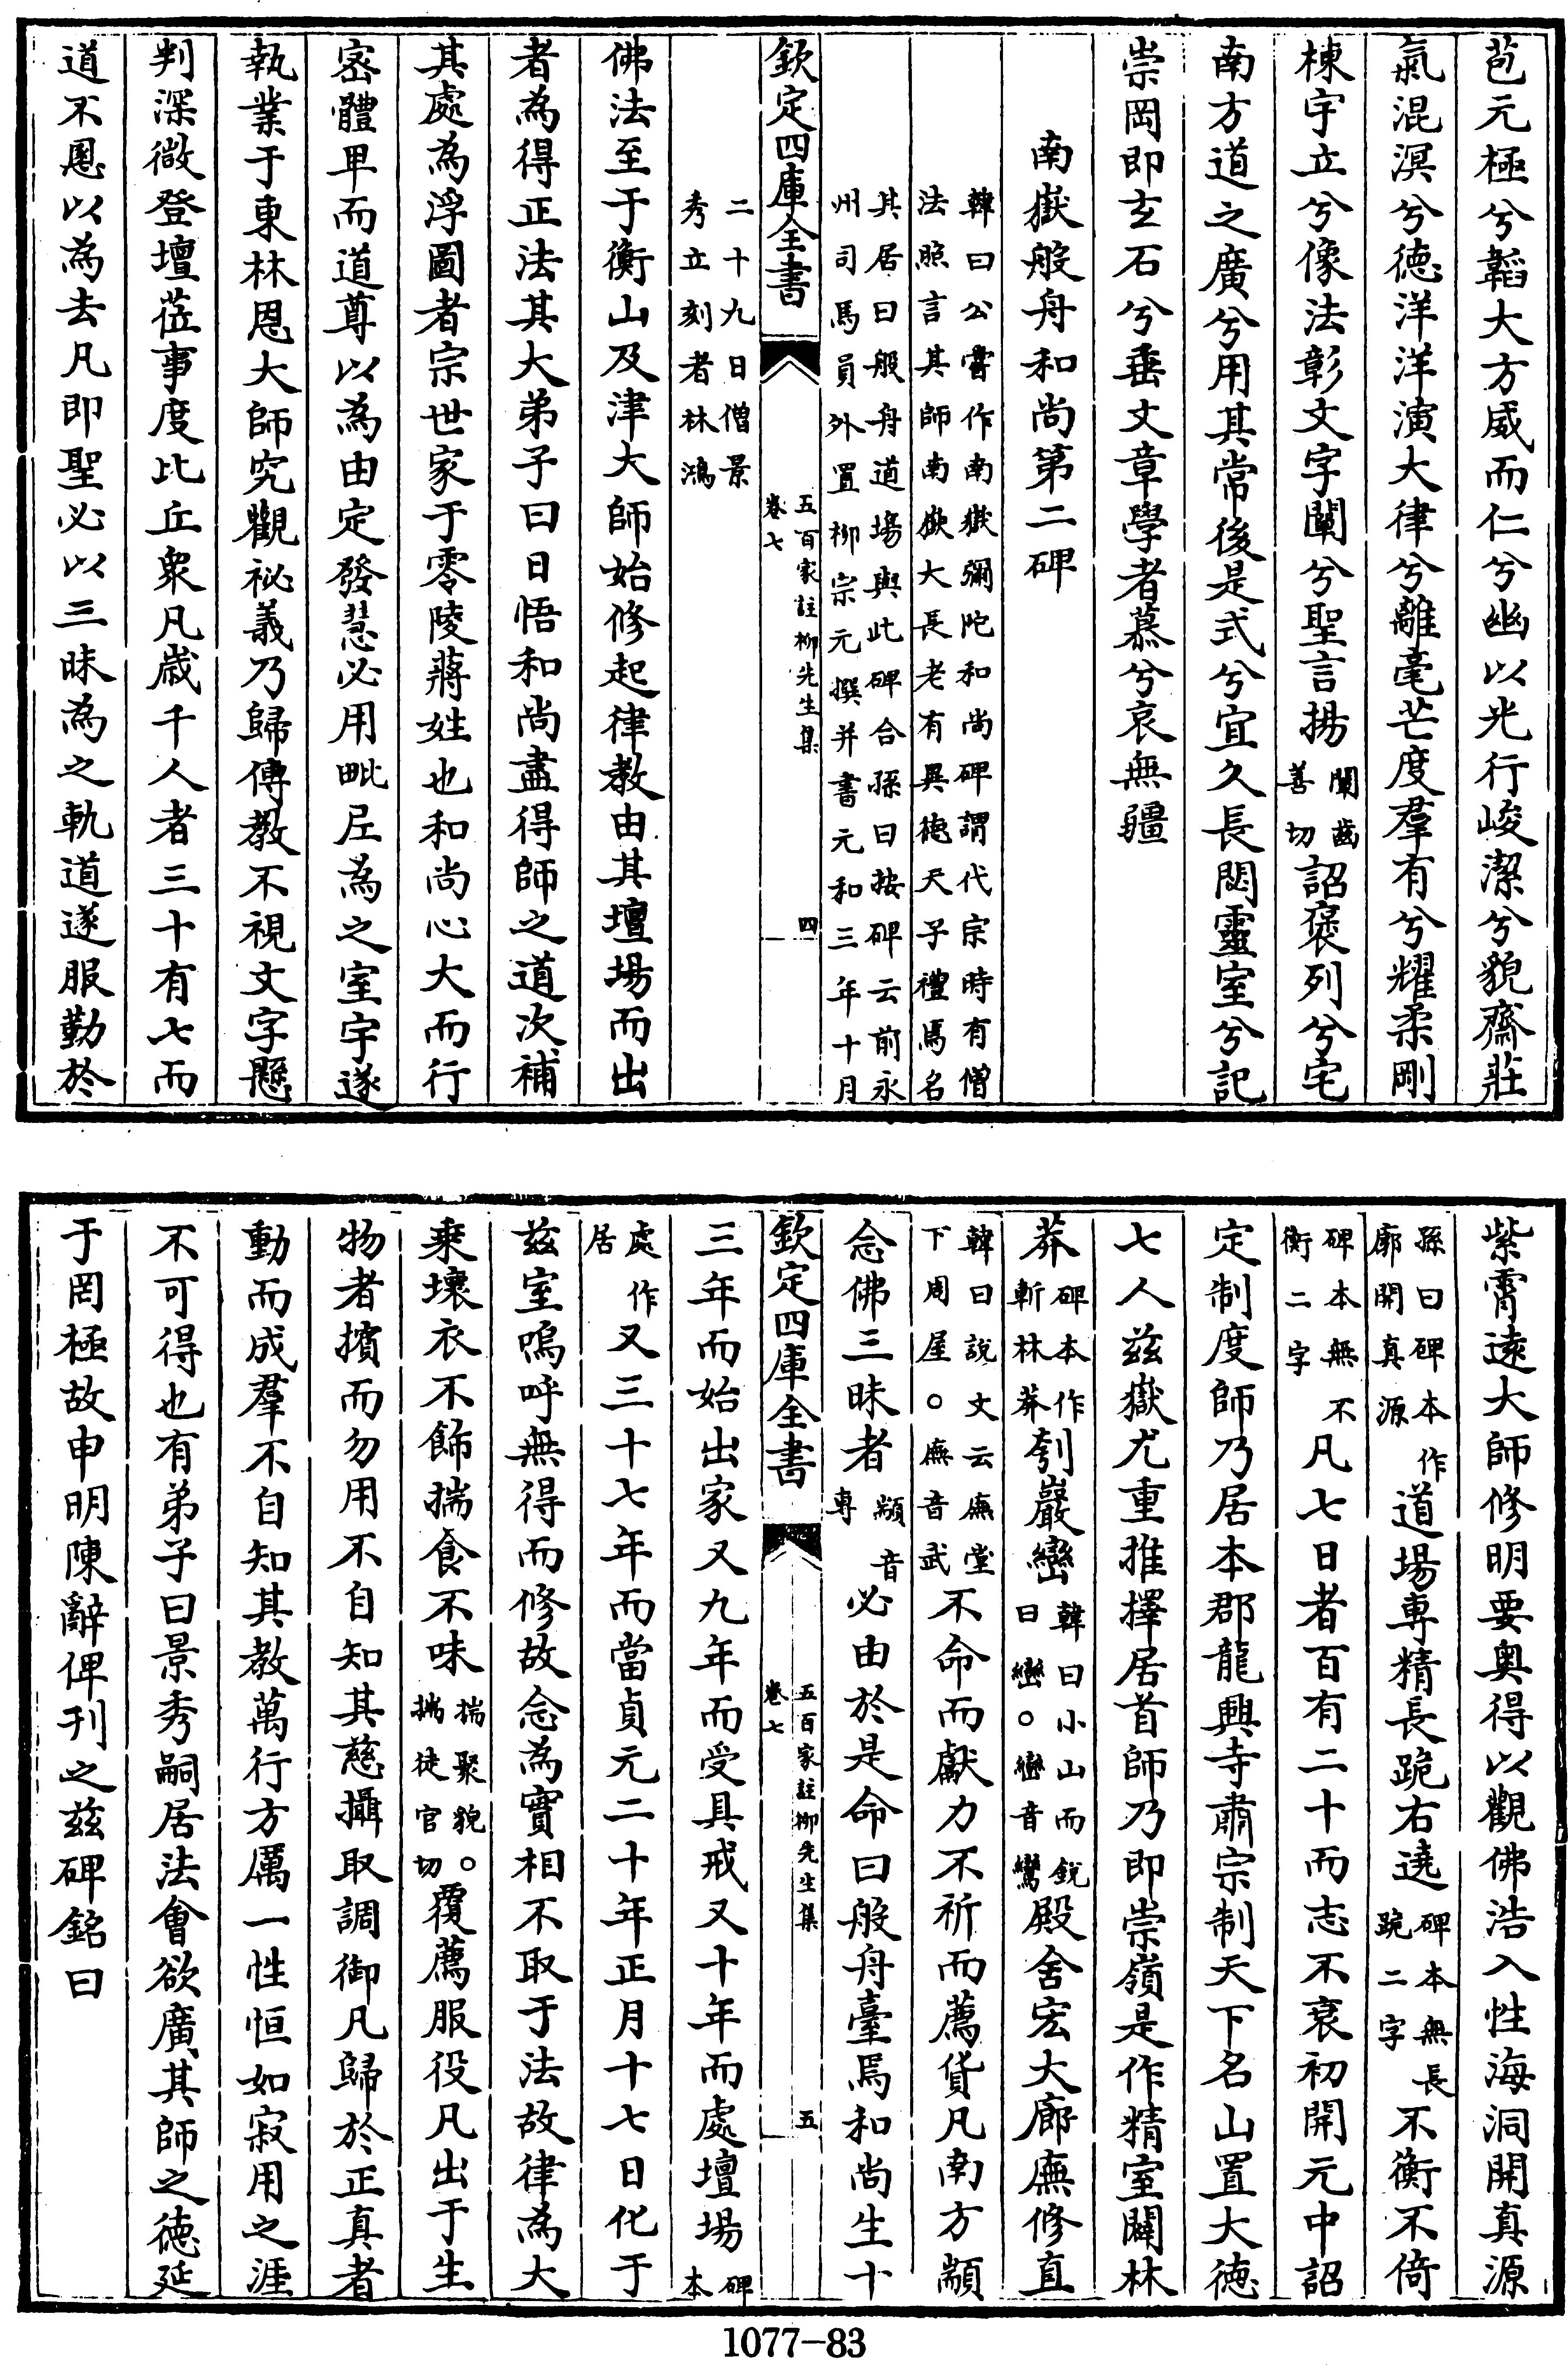 苞元極兮韜大方威而仁兮幽以光行峻潔兮貌齋莊
氣混溟兮德洋洋演大律兮離毫芒度羣有兮耀柔剛
棟宇立兮像法彰文字闡兮聖言揚闡齒善切詔褒列兮宅
南方道之廣兮用其常後是式兮宜久長閟靈室兮記
崇岡即玄石兮垂文章學者慕兮哀無疆
南嶽般舟和尚第二碑
韓曰公嘗作南嶽彌陀和尚碑謂代宗時有僧
法照言其師南嶽大長老有異德天子禮焉名
其居曰般舟道場與此碑合孫曰按碑云前永
州司馬員外置柳宗元撰并書元和三年十月
欽定四庫全書
五百家註柳先生集
卷七
四
二十九日僧景
秀立刻者林鴻
佛法至于衡山及津大師始修起律教由其壇場而出
者為得正法其大弟子曰日悟和尚盡得師之道次補
其處為浮圖者宗世家于零陵蔣姓也和尚心大而行
密體卑而道尊以為由定發慧必用毗尼為之室宇遂
執業于東林恩大師究觀祕義乃歸傳教不視文字懸
判深微登壇莅事度比丘衆凡歲千人者三十有七而
道不慁以為去凡即聖必以三昧為之軌道遂服勤於
紫霄遠大師修明要奥得以觀佛浩入性海洞開真源
孫曰碑本作廓開真源道場専精長跪右遶碑本無長跪二字不衡不倚
碑本無不衡二字凡七日者百有二十而志不衰初開元中詔
定制度師乃居本郡龍興寺肅宗制天下名山置大德
七人兹嶽尤重推擇居首師乃即崇嶺是作精室闢林
莽碑本作斬林莽刳巖巒韓曰小山而銳曰巒○巒音鸞殿舍宏大廊廡修直
韓曰說文云廡堂下周屋○廡音武不命而獻力不祈而薦貨凡南方顓
念佛三昧者顓音専必由於是命曰般舟臺焉和尚生十
欽定四庫全書
五百家註柳先生集
卷七
五
三年而始出家又九年而受具戒又十年而處壇場碑本
處作居又三十七年而當貞元二十年正月十七日化于
兹室嗚呼無得而修故念為實相不取于法故律為大
乘壞衣不飾揣食不味揣聚貌○揣徒官切覆薦服役凡出于生
物者擯而勿用不自知其慈攝取調御凡歸於正真者
動而成羣不自知其教萬行方厲一性恒如寂用之涯
不可得也有弟子曰景秀嗣居法會欲廣其師之德延
于罔極故申明陳辭俾刊之兹碑銘曰
1077-83